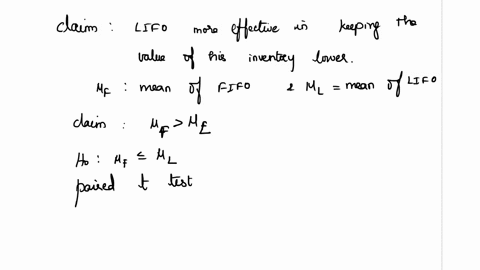 claim : LIFO more effective in keeping the
value of his inventory lower.
μF : mean of FIFO & ML = mean of LIFO
claim : μF > ME
Ho : μF ≤ μL
paired t test